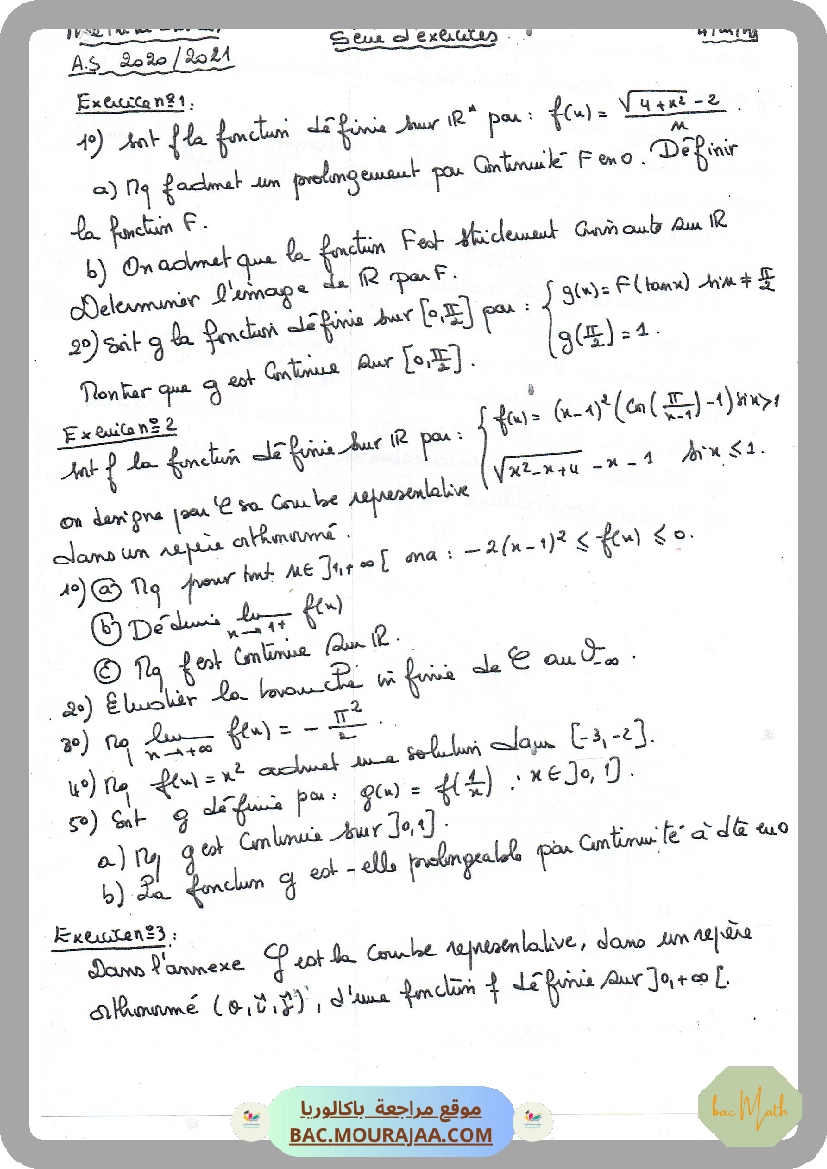 Série d'exercices
A.S 2020/2021
Exercice n°1:
1°) Soit f la fonction définie sur IR* par : f(x) = (√(4+x²) - 2)/x .
a) Mq f admet un prolongement par Continuité F en 0. Définir
la fonction F.
b) On admet que la fonction F est strictement croissante sur IR
Determiner l'image de IR par F.
2°) Soit g la fonction définie sur [0, π/2] par : { g(x) = F(tanx) si x ≠ π/2
g(π/2) = 1.
Montrer que g est Continue sur [0, π/2].
Exercice n°2
Soit f la fonction définie sur IR par : { f(x) = (x-1)² (Cos(π/(x-1)) - 1) si x>1
√(x²-x+4) - x - 1 si x ≤ 1.
on designe par C sa Courbe representative
dans un repère orthonormé.
1°) a) Mq pour tout x ∈ ]1, +∞[ on a : -2(x-1)² ≤ f(x) ≤ 0.
b) Déduire lim x→1+ f(x)
c) Mq f est Continue sur IR.
2°) Etudier la branche infinie de C au V-∞ .
3°) Mq lim x→+∞ f(x) = - π²/2 .
4°) Mq f(x) = x² admet une solution dans [-3, -2].
5°) Soit g définie par : g(x) = f(1/x) ; x ∈ ]0, 1].
a) Mq g est Continue sur ]0, 1].
b) La fonction g est-elle prolongeable par Continuité à dte en 0
Exercice n°3:
Dans l'annexe Cf est la Courbe representative, dans un repère
orthonormé (O, i, j), d'une fonction f définie sur ]0, +∞[.
موقع مراجعة باكالوريا
BAC.MOURAJAA.COM
bac Math